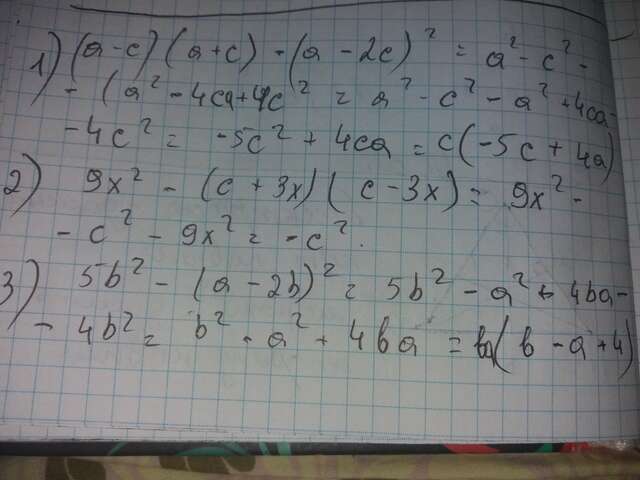 1) (a-c)(a+c) - (a-2c)² = a² - c² -
- (a² - 4ca + 4c² = a² - c² - a² + 4ca -
- 4c² = -5c² + 4ca = c(-5c + 4a)
2) 9x² - (c + 3x)(c - 3x) = 9x² -
- c² - 9x² = -c².
3) 5b² - (a - 2b)² = 5b² - a² + 4ba -
- 4b² = b² - a² + 4ba = ba(b - a + 4)